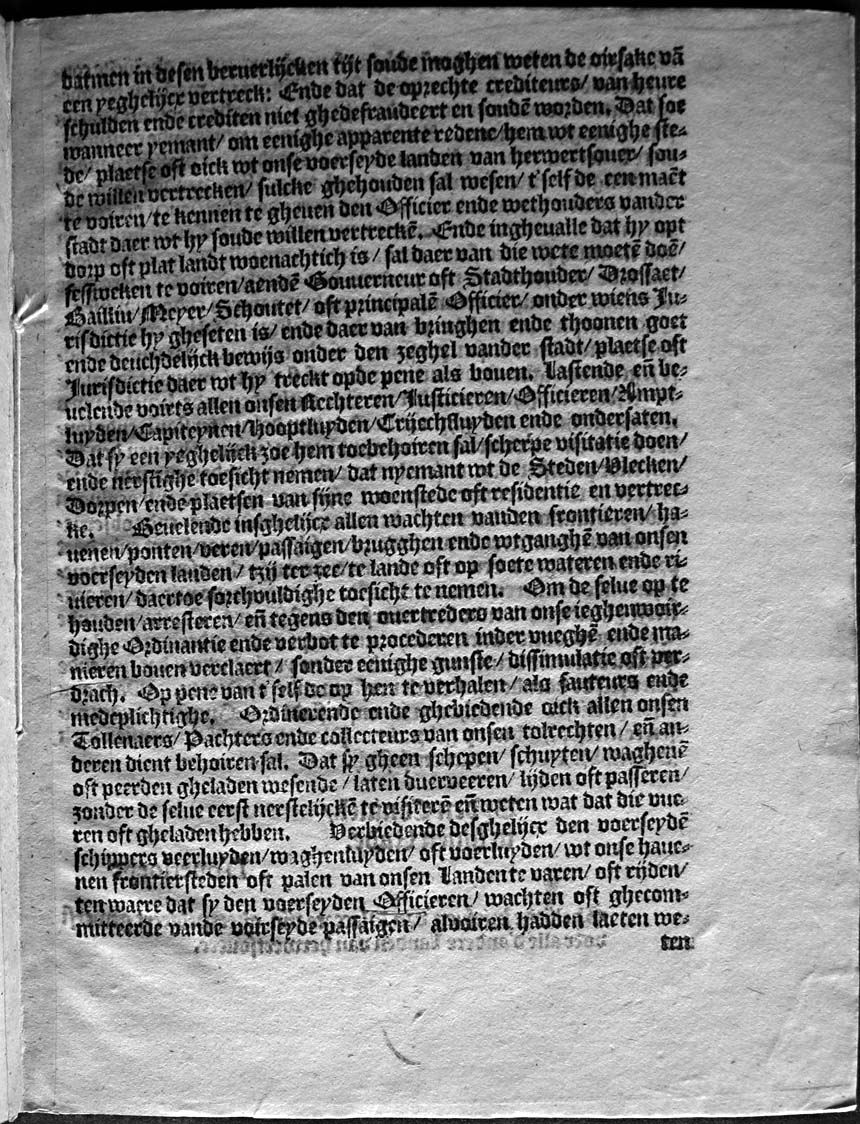 datmen in desen beruerlijcken tijt soude moghen weten de oirsake vā
een yeghelijcx vertreck: Ende dat de oprechte crediteurs/ van heure
schulden ende crediten niet ghedefraudeert en soudē worden. Dat soe
wanneer yemant/ om eenighe apparente redene/ hem wt eenighe ste-
de/ plaetse oft oick wt onse voerseyde landen van herwertsouer/ sou-
de willen vertrecken/ sulcke ghehouden sal wesen/ t'self de een maēt
te voiren/ te kennen te gheuen den Officier ende wethouders vander
stadt daer wt hy soude willen vertreckē. Ende ingheualle dat hy opt
dorp oft plat landt woenachtich is/ sal daer van die wete moetē doē/
sesswekē te voiren/ aendē Gouuerneur oft Stadthouder/ Drossaet/
Bailliu/ Meyer/ Schoutet/ oft principalē Officier/ onder wiens Ju-
risdictie hy gheseten is/ ende daer van bringhen ende thoonen goet
ende deuchdelijck bewijs onder den zeghel vander stadt/ plaetse oft
Jurisdictie daer wt hy treckt opde pene als bouen. Lastende eñ be-
uelende voirts allen onsen Rechteren/ Justicieren/ Officieren/ Ampt-
luyden/ Capiteynen/ Hooptluyden/ Crijechsluyden ende ondersaten.
Dat sy een yeghelijck zoe hem toebehoiren sal/ scherpe visitatie doen/
ende nerstighe toesicht nemen/ dat nyemant wt de Steden/ Vlecken/
Dorpen/ ende plaetsen van sijne woenstede oft residentie en vertrec-
ke. Beuelende insghelijcx allen wachten vanden frontieren/ ha-
uenen/ ponten/ veren/ passaigen/ brugghen ende wtganghē van onsen
voerseyden landen/ tzij ter zee/ te lande oft op soete wateren ende ri-
uieren/ daertoe sorchvuldighe toesicht te nemen. Om de selue op te
houden/ arresteren/ eñ tegens den ouertreders van onse ieghenwoir-
dighe Ordinantie ende verbot te procederen inder vueghē ende ma-
nieren bouen verclaert/ sonder eenighe gunste/ dissimulatie oft ver-
drach. Op pene van t'self de op hen te verhalen/ als fauteurs ende
medeplichtighe. Ordinerende ende ghebiedende oick allen onsen
Tollenaers/ Pachters ende collecteurs van onsen tolrechten/ eñ an-
deren dient behoiren sal. Dat sy gheen schepen/ schuyten/ waghenē
oft peerden gheladen wesende/ laten duerveeren/ lijden oft passeren/
zonder de selue eerst nerstelijckē te visiterē eñ weten wat dat die vue-
ren oft gheladen hebben. Verbiedende desghelijcx den voerseydē
schippers veerluyden/ waghenluyden/ oft voerluyden/ wt onse haue-
nen frontiersteden oft palen van onsen Landen te varen/ oft rijden/
ten waere dat sy den voerseyden Officieren/ wachten oft ghecom-
mitteerde vande voirseyde passaigen/ alvoiren hadden laeten we-
ten